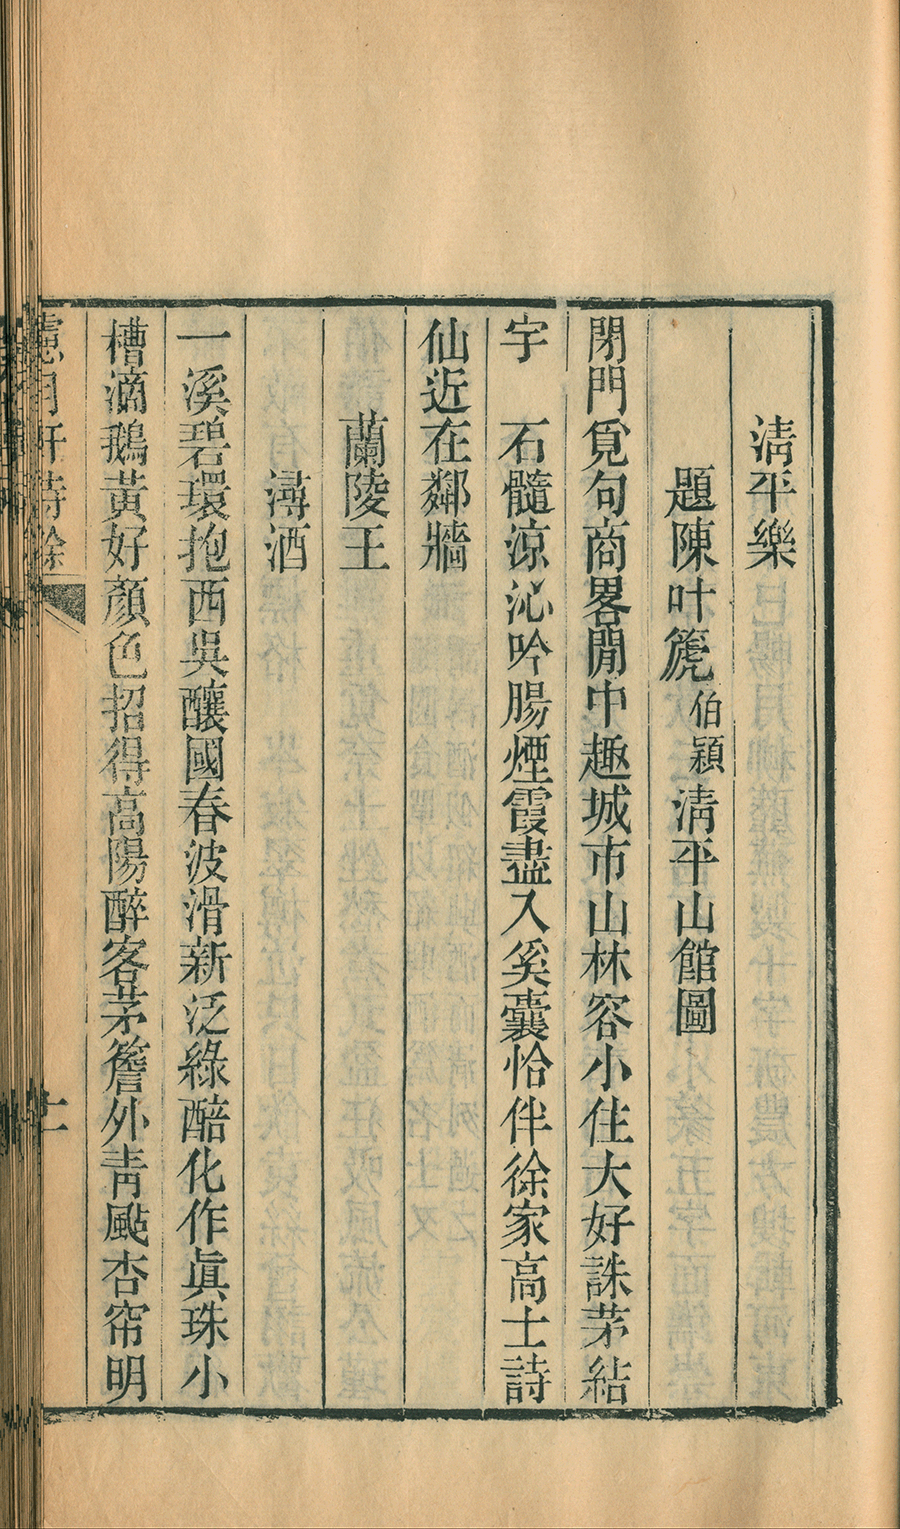 清平樂
題陳叶箎伯潁清平山館圖
閉門覓句商畧閒中趣城市山林容小住大好誅茅結
宇　石髓涼沁吟腸煙霞盡入奚囊恰伴徐家高士詩
仙近在鄰牆
蘭陵王
潯酒
一溪碧環抱西吳釀國春波滑新泛綠醅化作眞珠小
槽滴鵝黃好顏色招得高陽醉客茅簷外靑颭杏帘明
月軒詩餘